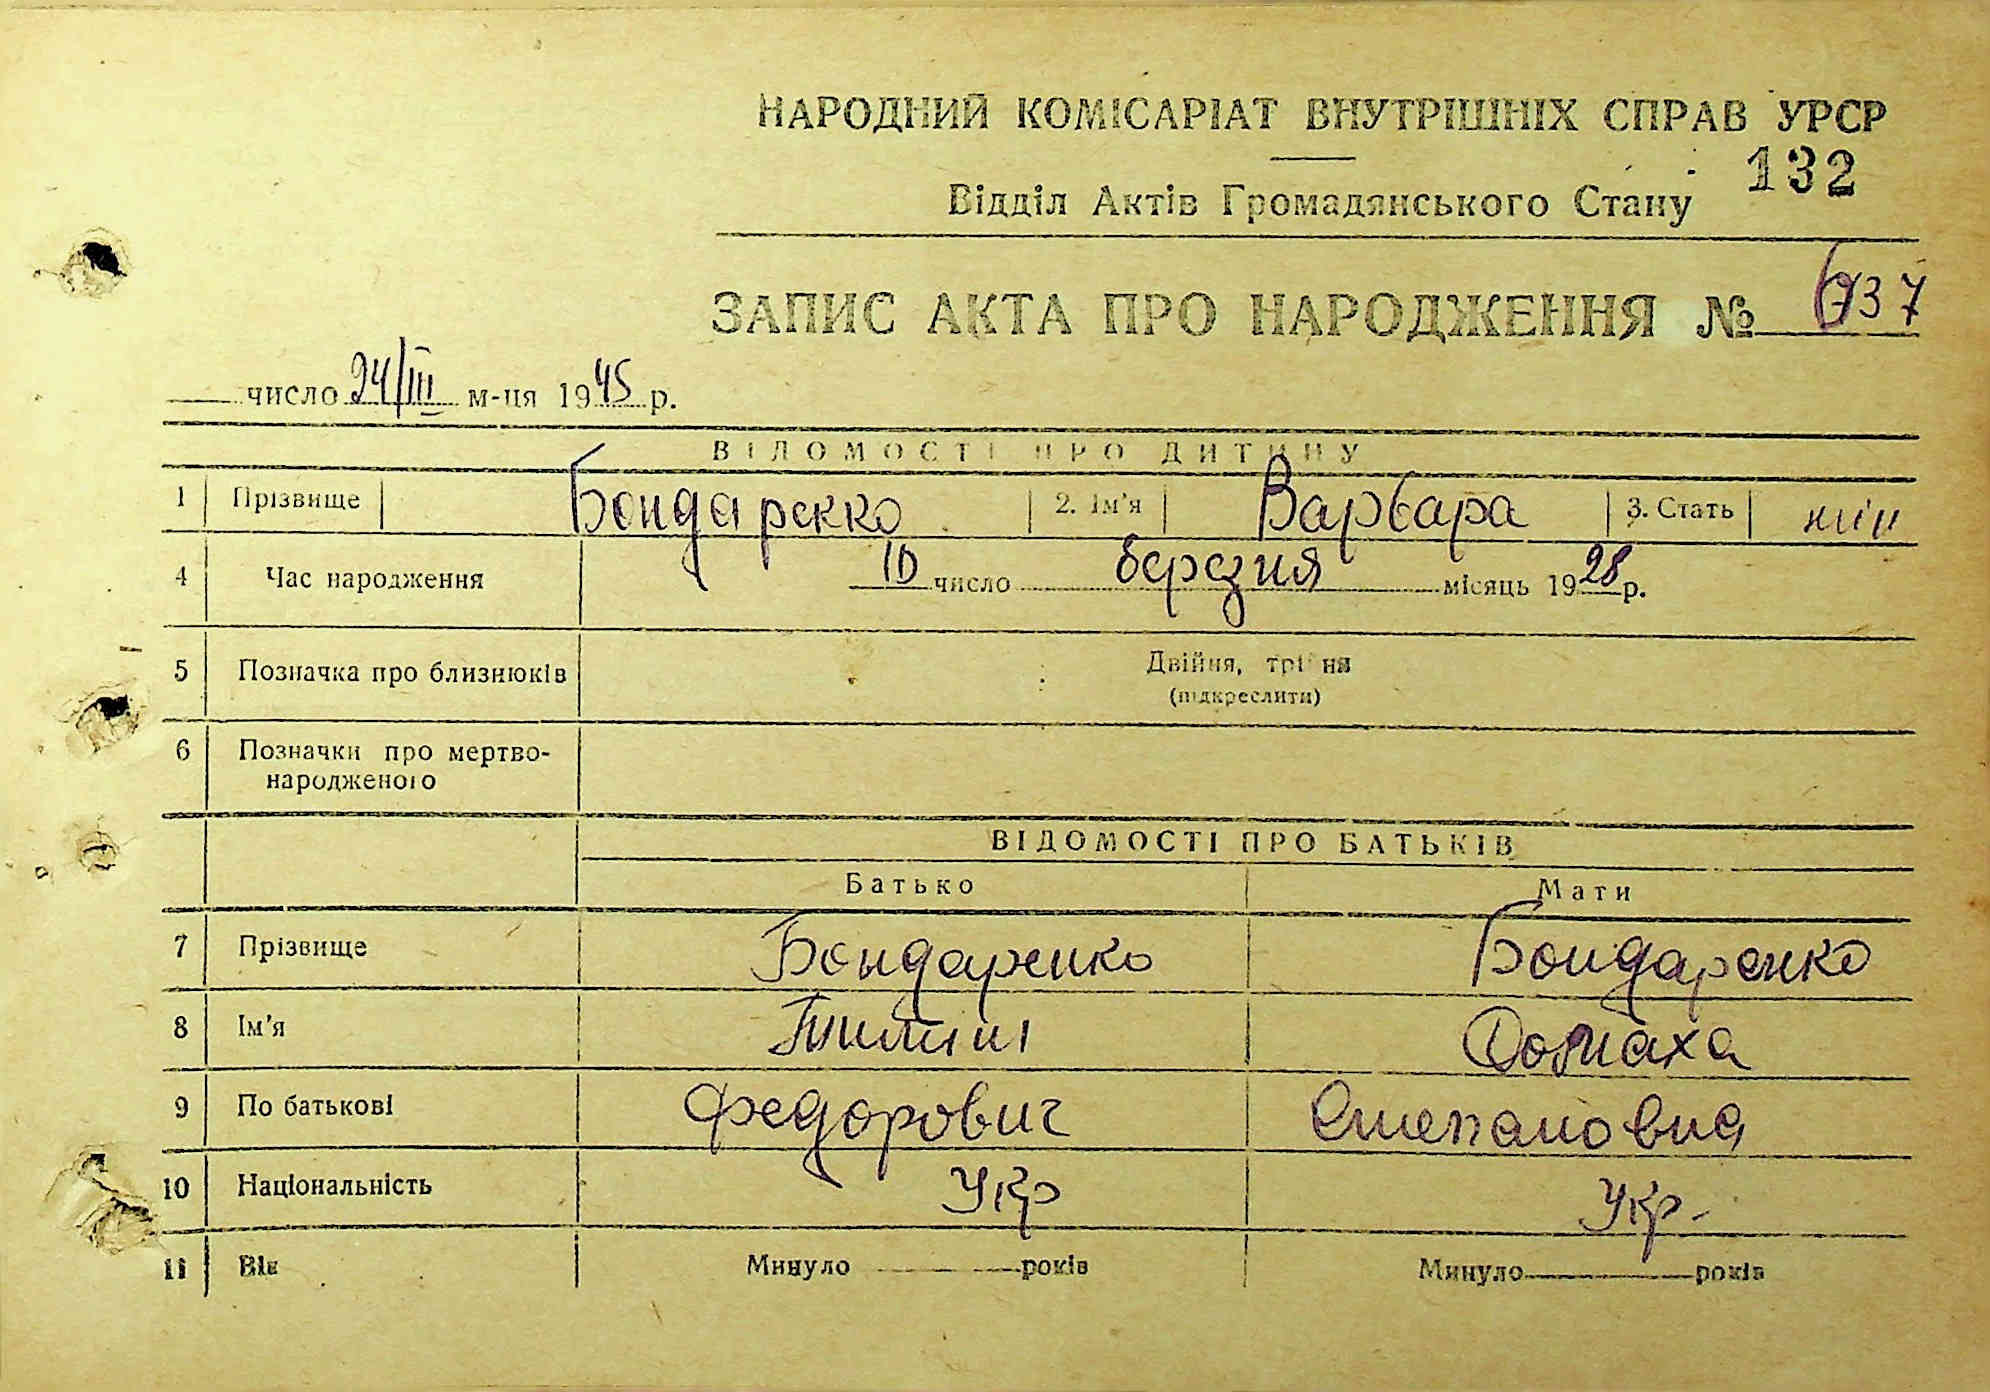 НАРОДНИЙ КОМІСАРІАТ ВНУТРІШНІХ СПРАВ УРСР
132
Відділ Актів Громадянського Стану
ЗАПИС АКТА ПРО НАРОДЖЕННЯ № 737
число 24/III м-ця 1945 р.
ВІДОМОСТІ ПРО ДИТИНУ
1 Прізвище Бондаренко 2. Ім'я Варвара 3. Стать жін
4 Час народження 10 число березня місяць 1928 р.
5 Позначка про близнюків Двійня, трійня
(підкреслити)
6 Позначки про мертво-
народженого
ВІДОМОСТІ ПРО БАТЬКІВ
Батько Мати
7 Прізвище Бондаренко Бондаренко
8 Ім'я Домаха
9 По батькові Федорович Степановна
10 Національність Укр Укр.
11 Вік Минуло років Минуло років